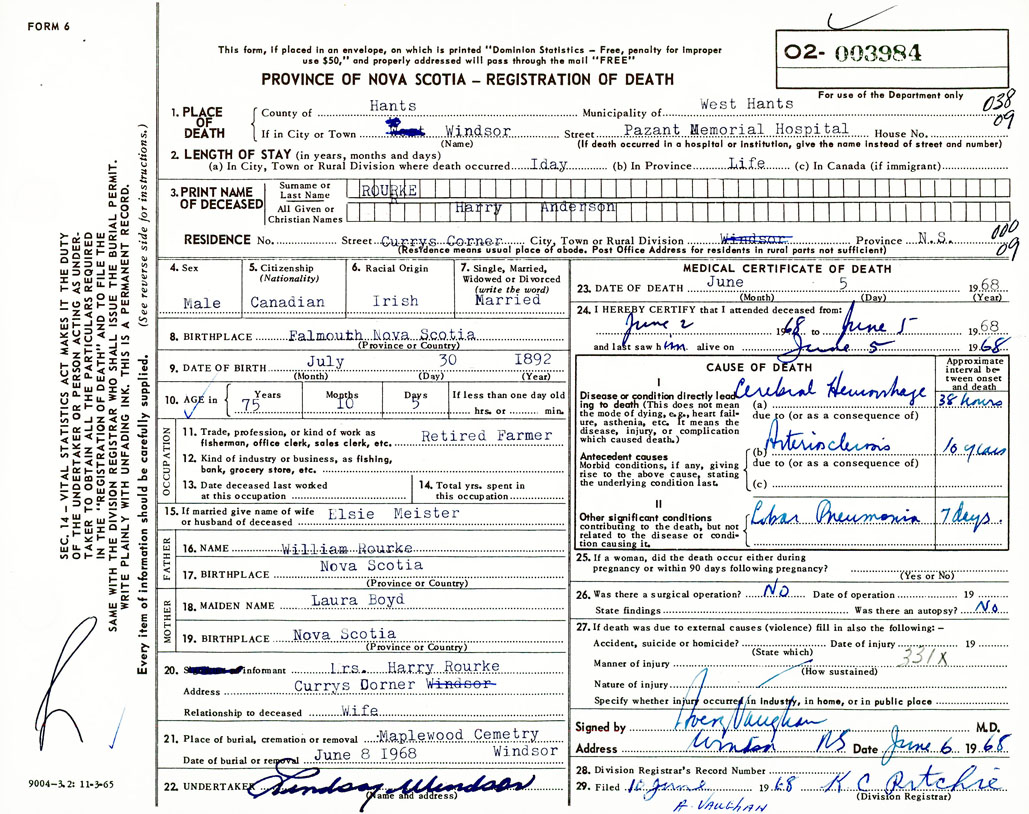 FORM 6
O2- 003984
This form, if placed in an envelope, on which is printed "Dominion Statistics – Free, penalty for improper
use $50," and properly addressed will pass through the mail "FREE"
PROVINCE OF NOVA SCOTIA – REGISTRATION OF DEATH
For use of the Department only
038
09
1. PLACE OF DEATH County of Hants Municipality of West Hants
If in City or Town Windsor Street Pazant Memorial Hospital House No.
(Name) (If death occurred in a hospital or institution, give the name instead of street and number)
2. LENGTH OF STAY (in years, months and days)
(a) In City, Town or Rural Division where death occurred 1day (b) In Province Life (c) In Canada (if immigrant)
3. PRINT NAME OF DECEASED Surname or Last Name ROURKE
All Given or Christian Names Harry Anderson
000
09
RESIDENCE No. Street Currys Corner City, Town or Rural Division Windsor Province N.S.
(Residence means usual place of abode. Post Office Address for residents in rural parts not sufficient)
4. Sex Male
5. Citizenship (Nationality) Canadian
6. Racial Origin Irish
7. Single, Married, Widowed or Divorced (write the word) Married
8. BIRTHPLACE Falmouth Nova Scotia
(Province or Country)
9. DATE OF BIRTH July 30 1892
(Month) (Day) (Year)
10. AGE in Years 75 Months 10 Days 5 If less than one day old hrs. or min.
OCCUPATION
11. Trade, profession, or kind of work as
fisherman, office clerk, sales clerk, etc. Retired Farmer
12. Kind of industry or business, as fishing,
bank, grocery store, etc.
13. Date deceased last worked
at this occupation
14. Total yrs. spent in
this occupation
15. If married give name of wife
or husband of deceased Elsie Meister
FATHER
16. NAME William Rourke
17. BIRTHPLACE Nova Scotia
(Province or Country)
MOTHER
18. MAIDEN NAME Laura Boyd
19. BIRTHPLACE Nova Scotia
(Province or Country)
20. informant Mrs. Harry Rourke
Address Currys Corner Windsor
Relationship to deceased Wife
21. Place of burial, cremation or removal Maplewood Cemetry
Date of burial or removal June 8 1968 Windsor
22. UNDERTAKER Lindsay Windsor
(Name and address)
MEDICAL CERTIFICATE OF DEATH
23. DATE OF DEATH June 5 1968
(Month) (Day) (Year)
24. I HEREBY CERTIFY that I attended deceased from:
June 2 1968 to June 5 1968
and last saw him alive on June 5 1968
CAUSE OF DEATH
Approximate interval between onset and death
I
Disease or condition directly leading to death (This does not mean the mode of dying, e.g., heart failure, asthenia, etc. It means the disease, injury, or complication which caused death.)
(a) Cerebral Hemorrhage 38 hours
due to (or as a consequence of)
(b) Arteriosclerosis 10 years
due to (or as a consequence of)
(c)
Antecedent causes
Morbid conditions, if any, giving
rise to the above cause, stating
the underlying condition last.
II
Other significant conditions
contributing to the death, but not
related to the disease or condition causing it.
Lobar Pneumonia 7 days.
25. If a woman, did the death occur either during
pregnancy or within 90 days following pregnancy?
(Yes or No)
26. Was there a surgical operation? No Date of operation 19
State findings Was there an autopsy? No
27. If death was due to external causes (violence) fill in also the following: –
Accident, suicide or homicide? Date of injury 19
(State which)
331X
Manner of injury
(How sustained)
Nature of injury
Specify whether injury occurred in industry, in home, or in public place
Signed by Vaughan M.D.
Address Windsor NS Date June 6 1968
28. Division Registrar's Record Number
29. Filed 10 June 1968 K C Ritchie
(Division Registrar)
A. VAUGHAN
SEC. 14 – VITAL STATISTICS ACT MAKES IT THE DUTY
OF THE UNDERTAKER OR PERSON ACTING AS UNDER-
TAKER TO OBTAIN ALL THE PARTICULARS REQUIRED
IN THE "REGISTRATION OF DEATH" AND TO FILE THE
SAME WITH THE DIVISION REGISTRAR WHO SHALL ISSUE THE BURIAL PERMIT.
WRITE PLAINLY WITH UNFADING INK. THIS IS A PERMANENT RECORD.
Every item of information should be carefully supplied. (See reverse side for instructions.)
9004-3.2: 11-3-65